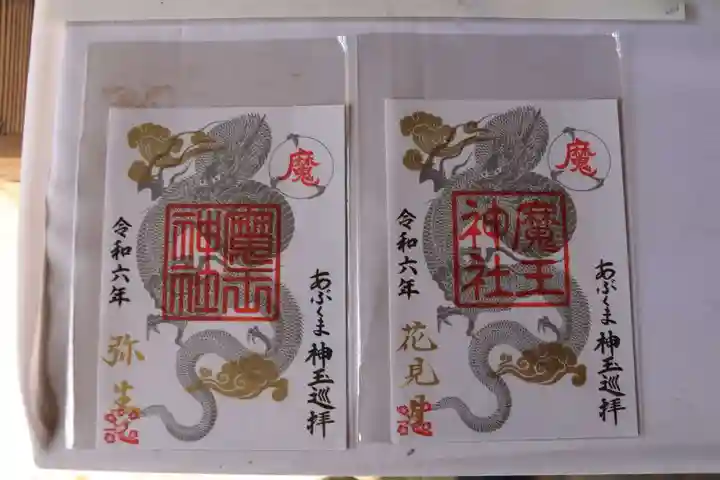 魔
魔王
神社
あぶくま神玉巡拝
令和六年
弥生
魔
魔王
神社
あぶくま神玉巡拝
令和六年
花見月